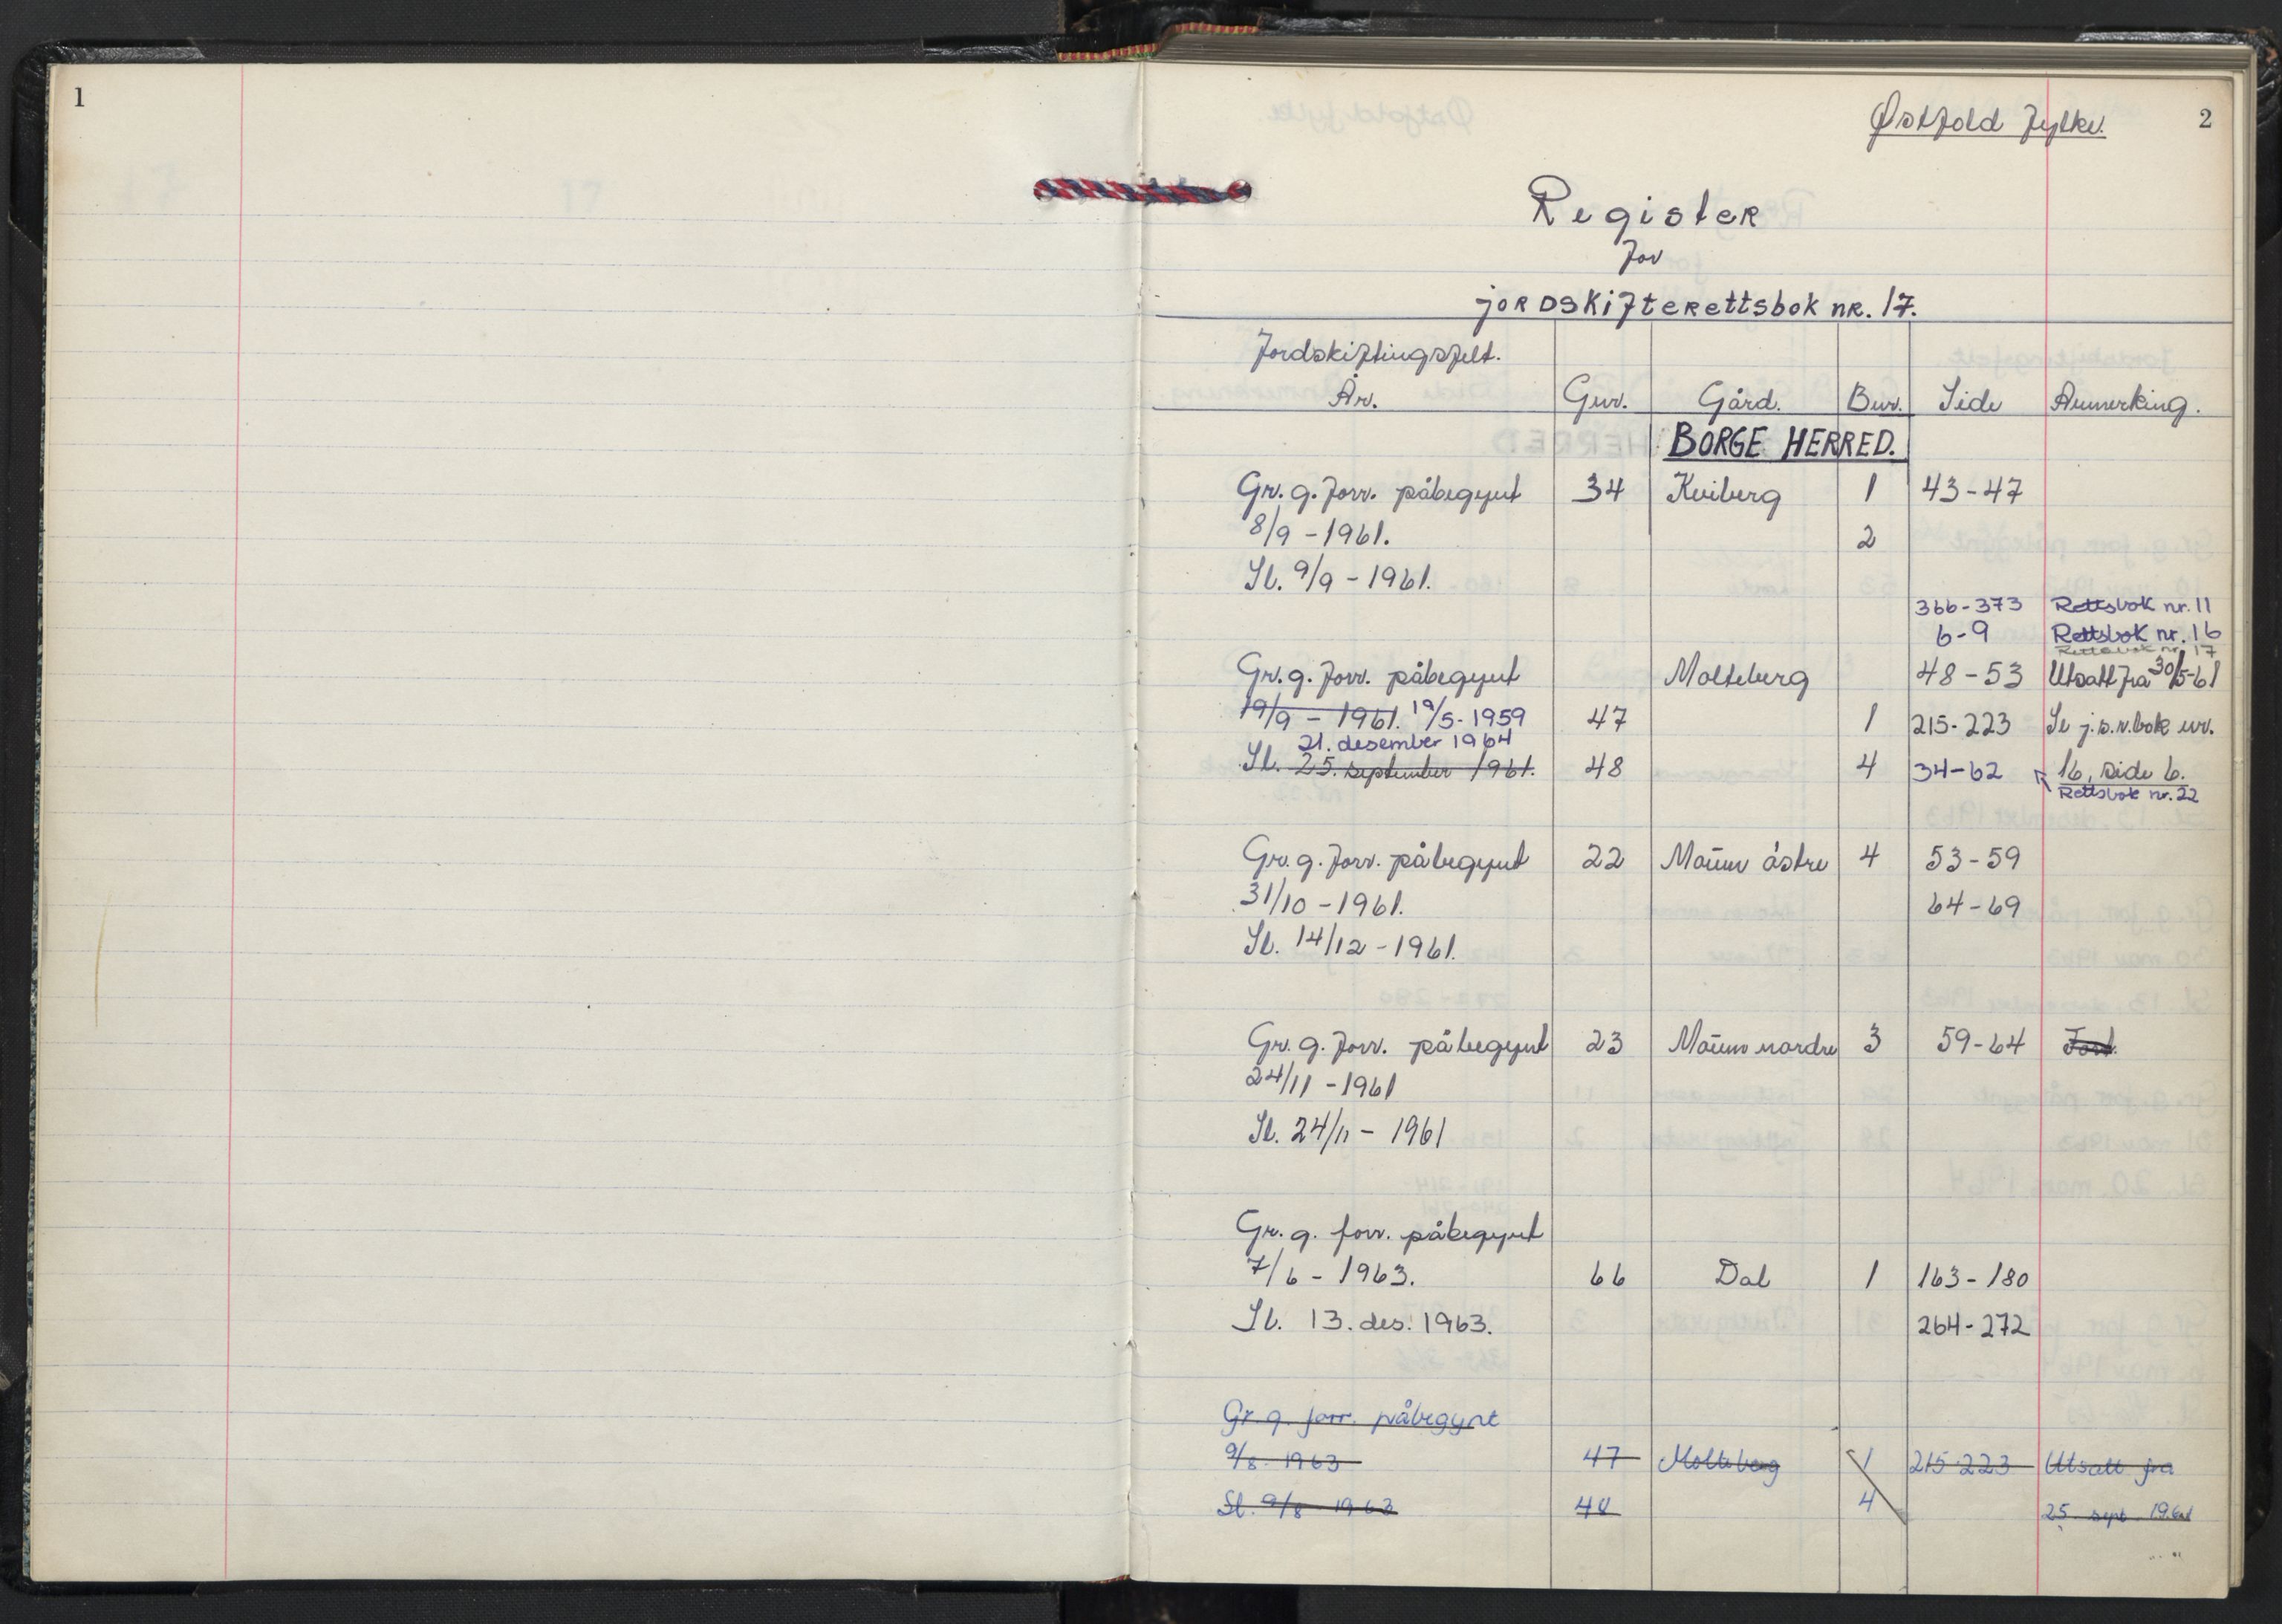 1
Østfold fylke.
2
Register
for
jordskifterettsbok nr. 17.
Jordskiftingsfelt.
År. Gnr. Gård. Bnr. Side Anmerking.
BORGE HERRED.
Gr. g. forr. påbegynt 34 Kviberg 1 43-47
8/9 - 1961. 2
Sl. 9/9 - 1961.
366-373 Rettsbok nr. 11
6-9 Rettsbok nr. 16
Rettsbok nr. 17
Gr. g. forr. påbegynt Molteberg 48-53 Utsatt fra 30/5-61
19/9 - 1961. 19/5-1959 47 1 215-223 Se j.s.r.bok nr.
21. desember 1964
Sl. 25. september 1961. 48 4 34-62 16, side 6.
Rettsbok nr. 22
Gr. g. forr. påbegynt 22 Moum østre 4 53-59
31/10 - 1961. 64-69
Sl. 14/12 - 1961.
Gr. g. forr. påbegynt 23 Moum nordre 3 59-64 Fort.
24/11 - 1961
Sl. 24/11 - 1961
Gr. g. forr. påbegynt
7/6 - 1963. 66 Dal 1 163-180
Sl. 13. des. 1963. 264-272
Gr. g. forr. påbegynt
9/8 1963 47 Molteberg 1 215-223 Utsatt fra
Sl. 9/8 1963 48 4 25. sept. 1961